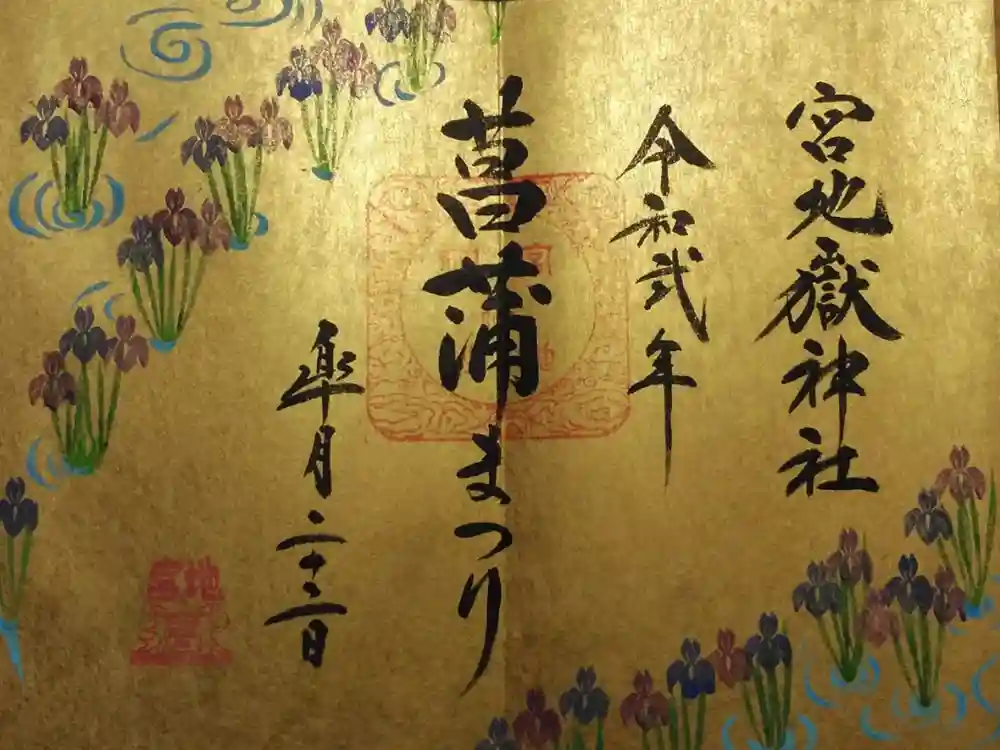 宮地嶽神社
令和弐年
菖蒲まつり
皐月二十三日